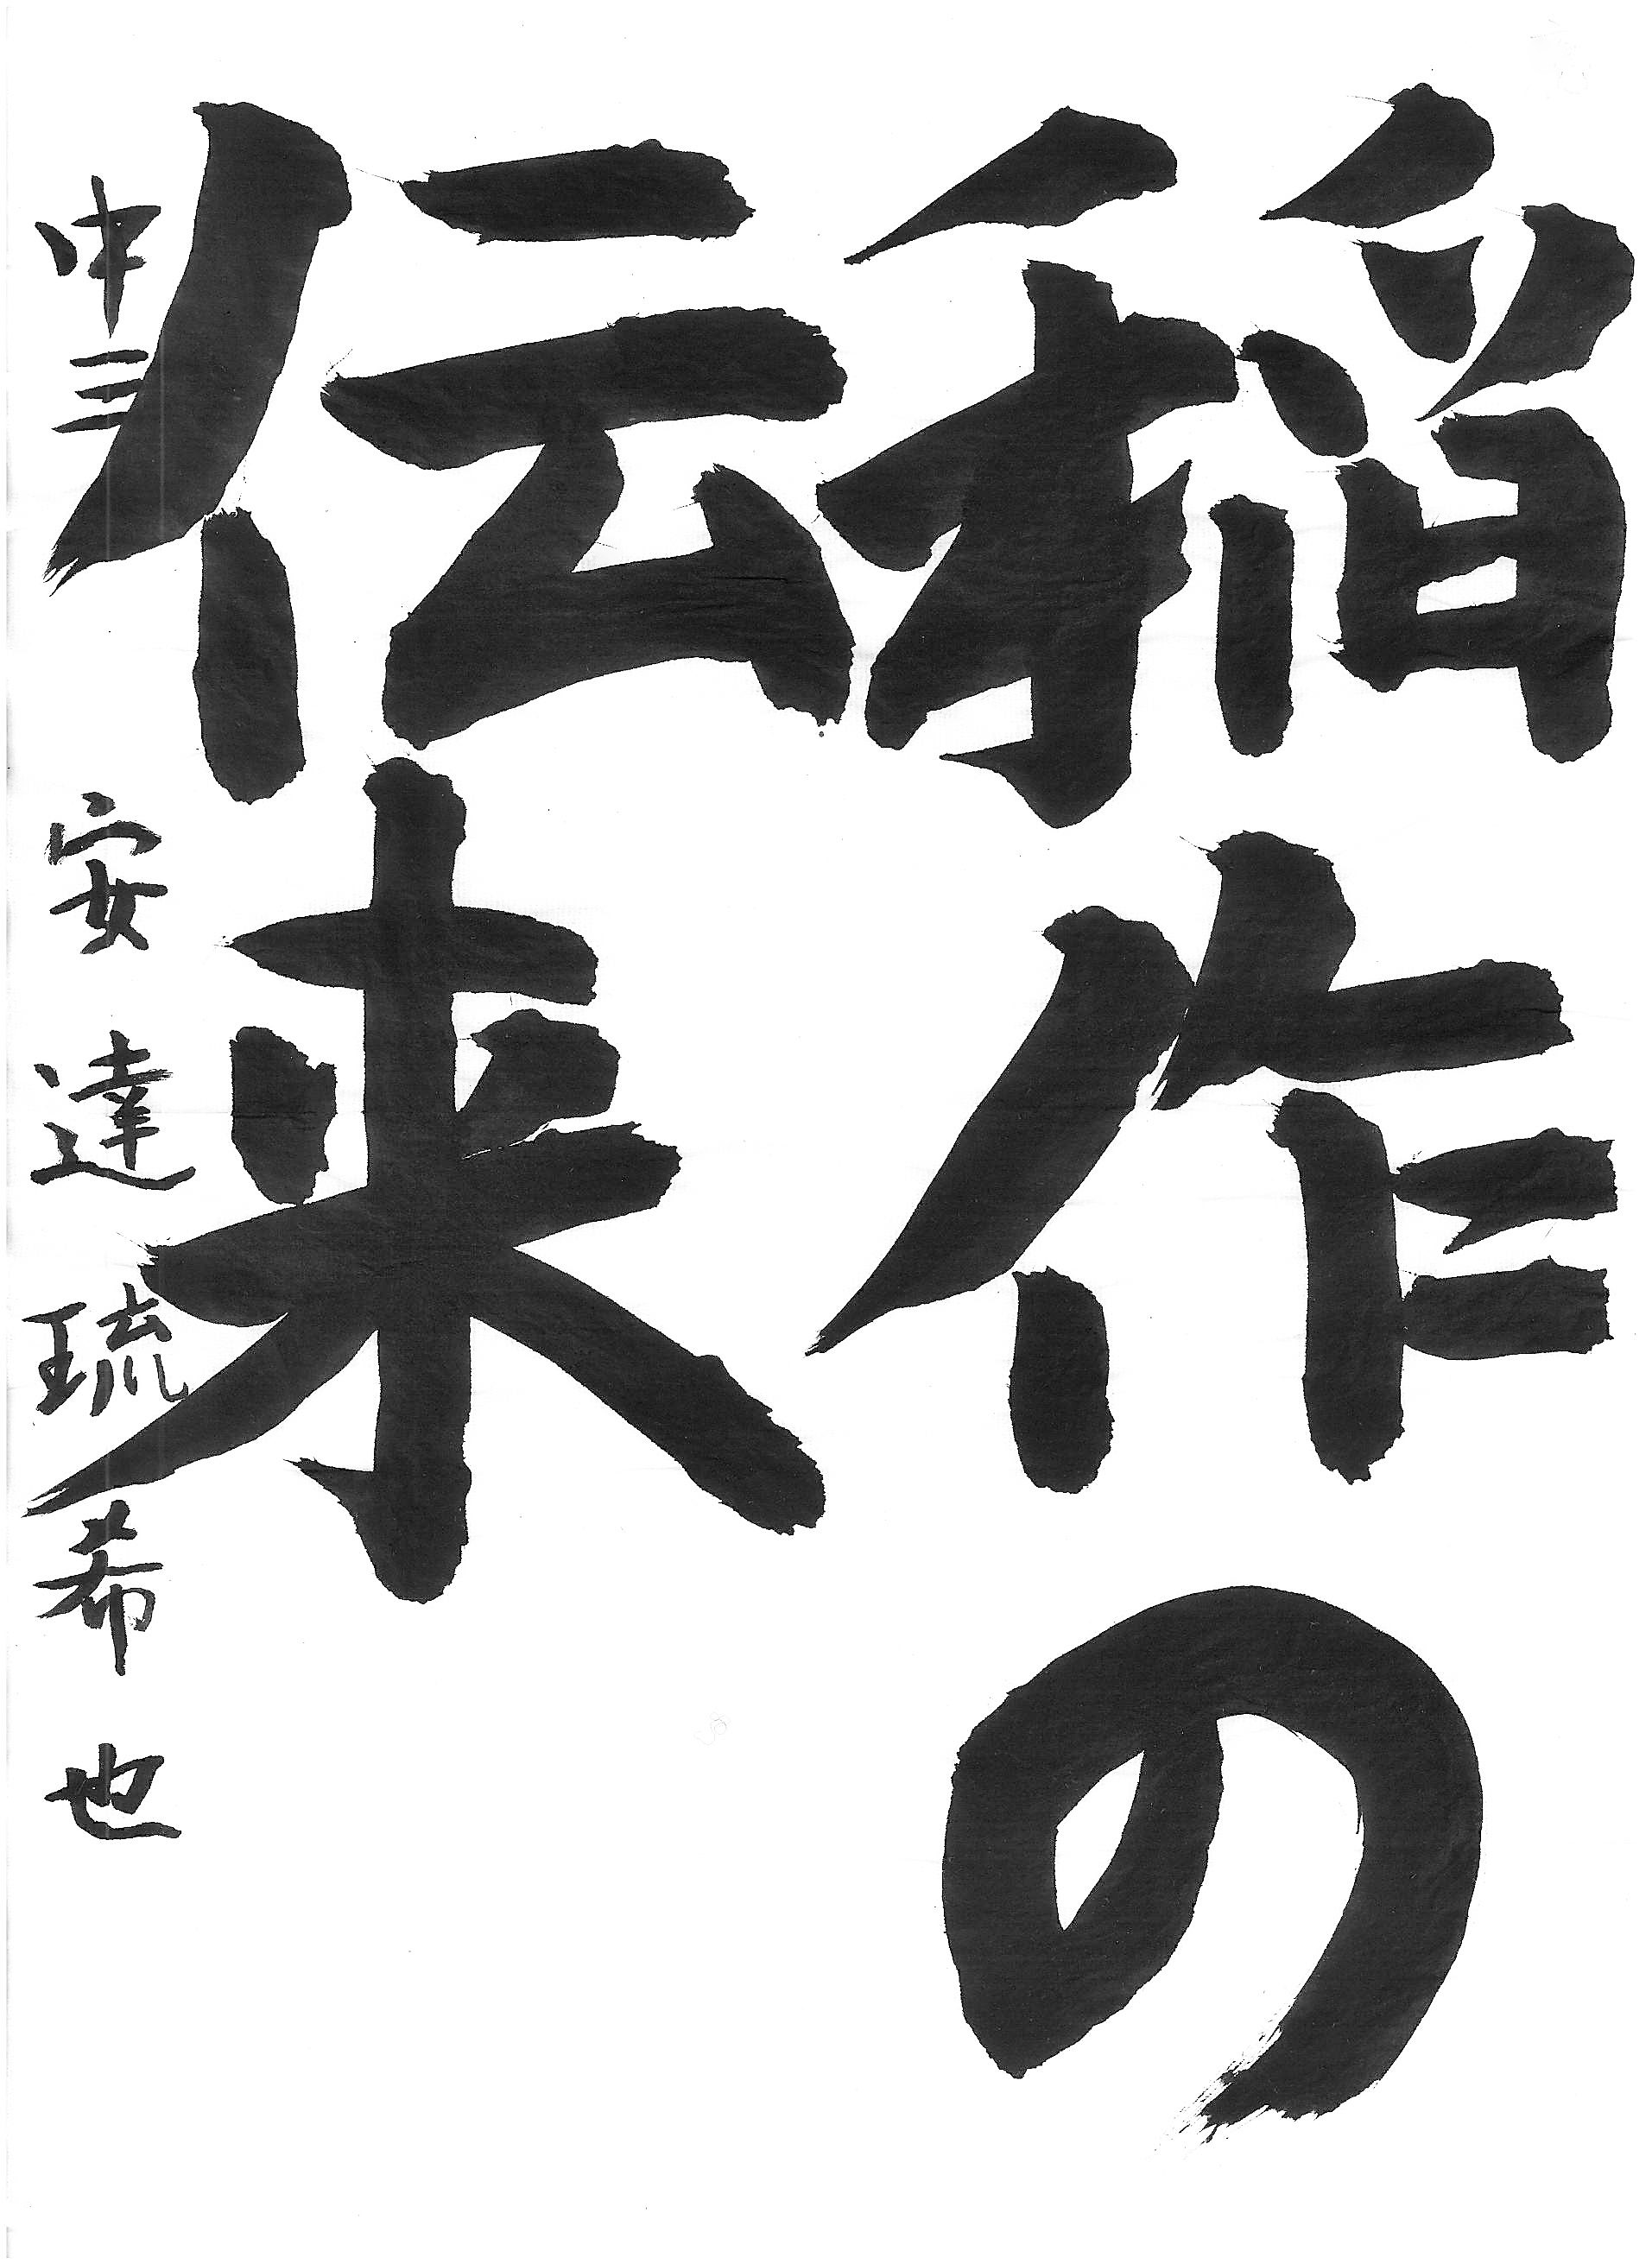 稲作の
伝来
中三 安達琉希也